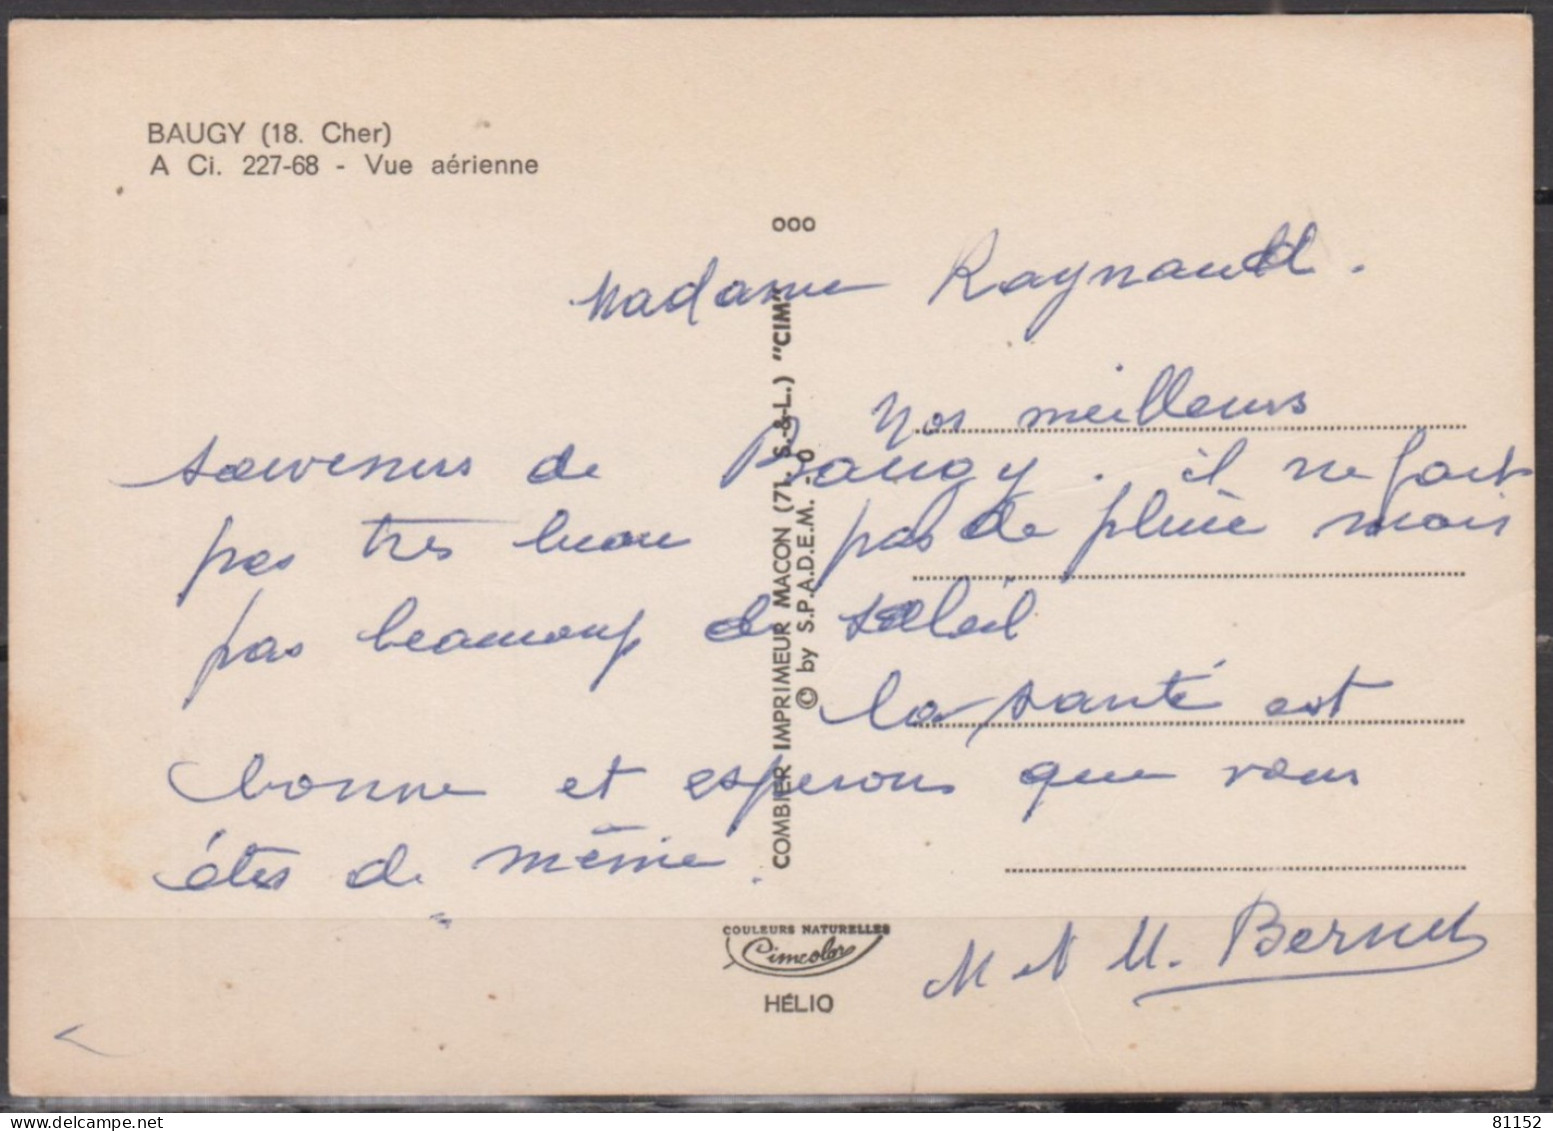 BAUGY (18. Cher)
A Ci. 227-68 - Vue aérienne
ooo
Madame Raynaud.
Nos meilleurs
souvenirs de Baugy. il ne fait
pas très beau pas de pluie mais
pas beaucoup de soleil
la santé est
bonne et esperons que vous
êtes de même.
M et M. Bernet
COMBIER IMPRIMEUR MACON (71. S.-&-L.) "CIM"
© by S.P.A.D.E.M. - 0
COULEURS NATURELLES
Cimcolor
HÉLIO
81152